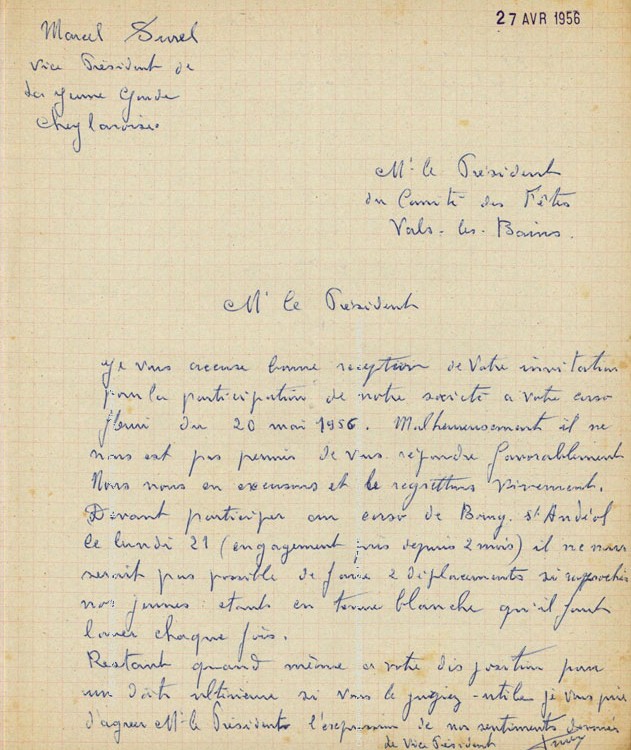 27 AVR 1956
Marcel Surel
Vice Président de
La Jeune Garde
Cheylaroise
Mr le Président
du Comité des Fêtes
Vals-les-Bains.
Mr le Président
Je vous accuse bonne reception de Votre invitation
pour la participation de notre societé a votre corso
fleuri du 20 mai 1956. Malheureusement il ne
nous est pas permis de vous repondre favorablement
Nous nous en excusons et le regrettons vivement.
Devant participer au corso de Bourg St Andéol
le lundi 21 (engagement pris depuis 2 mois) il ne nous
serait pas possible de faire 2 déplacements si rapprochés
nos jeunes etants en tenue blanche qu'il faut
laver chaque fois.
Restant quand même a votre disposition pour
un date ultérieure si vous le jugiez utile je vous prie
d'agreer Mr le Président l'expression de nos sentiments devoués
Le Vice Président